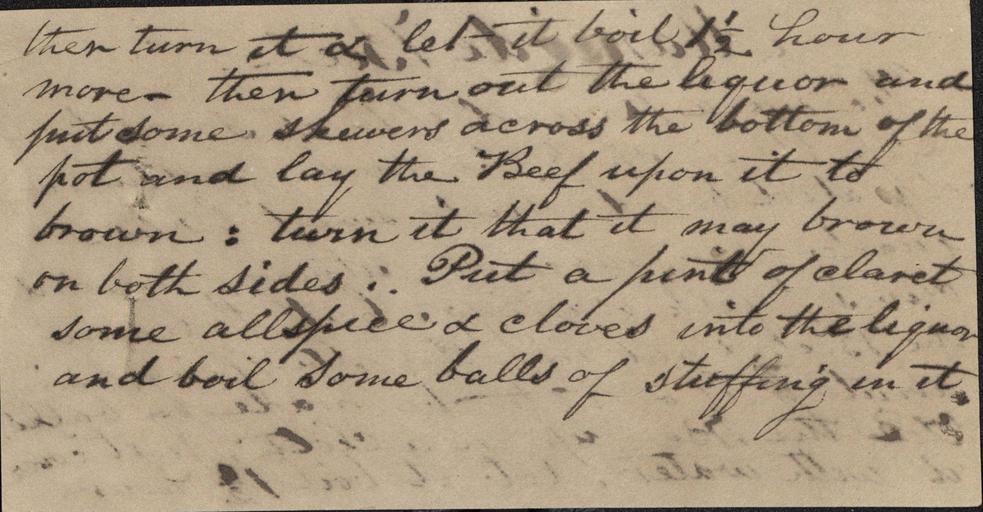 then turn it & let it boil 1½ hour
more - then turn out the liquor and
put some skewers across the bottom of the
pot and lay the Beef upon it to
brown : turn it that it may brown
on both sides .. Put a pint of claret
some allspice & cloves into the liquor
and boil some balls of stuffing in it.